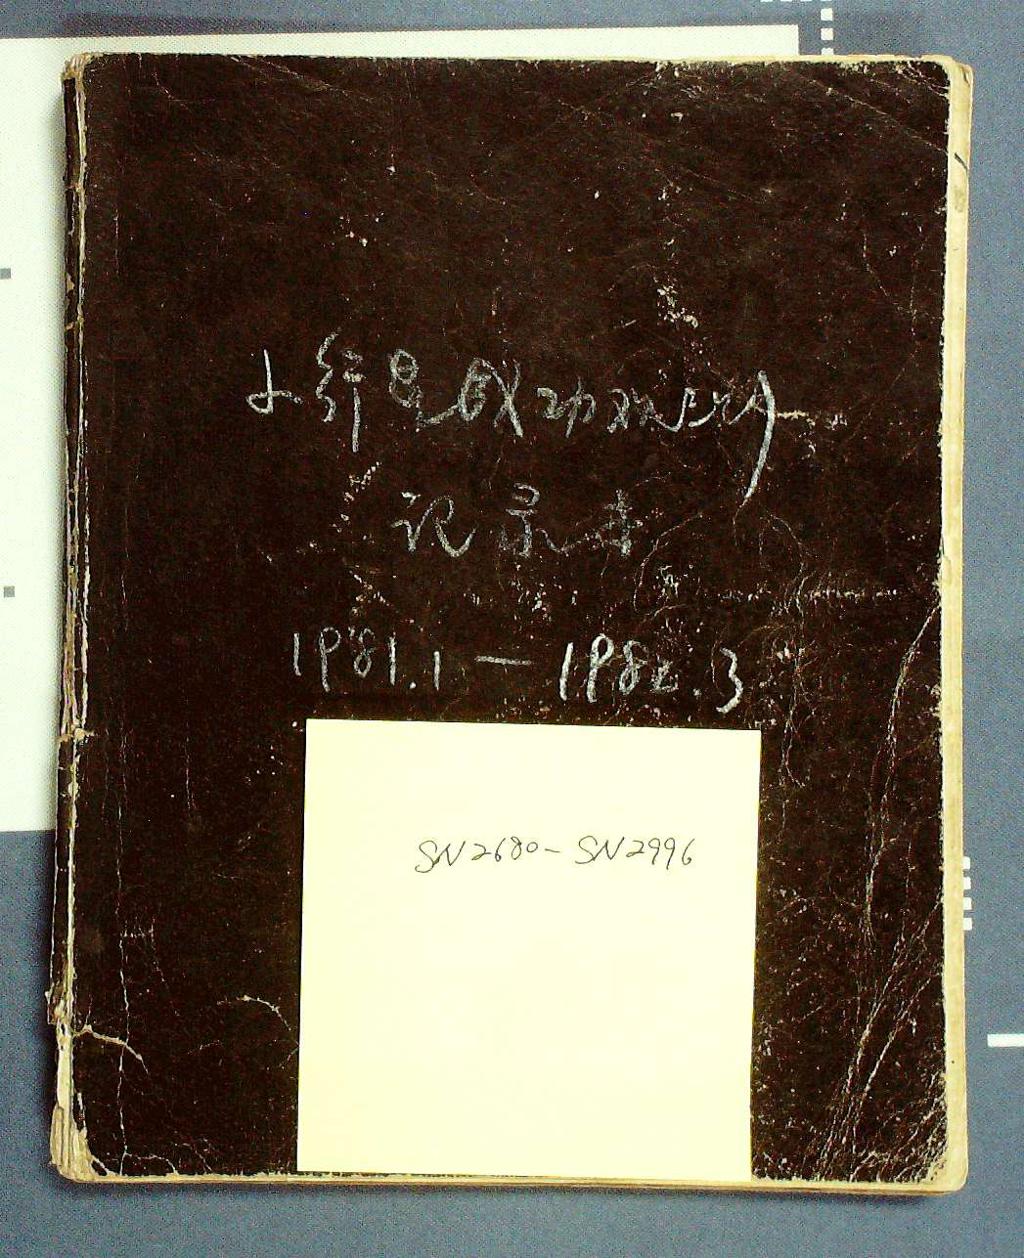 小行星成功观测
记录本
1981.1—1982.3
SN2680-SN2996